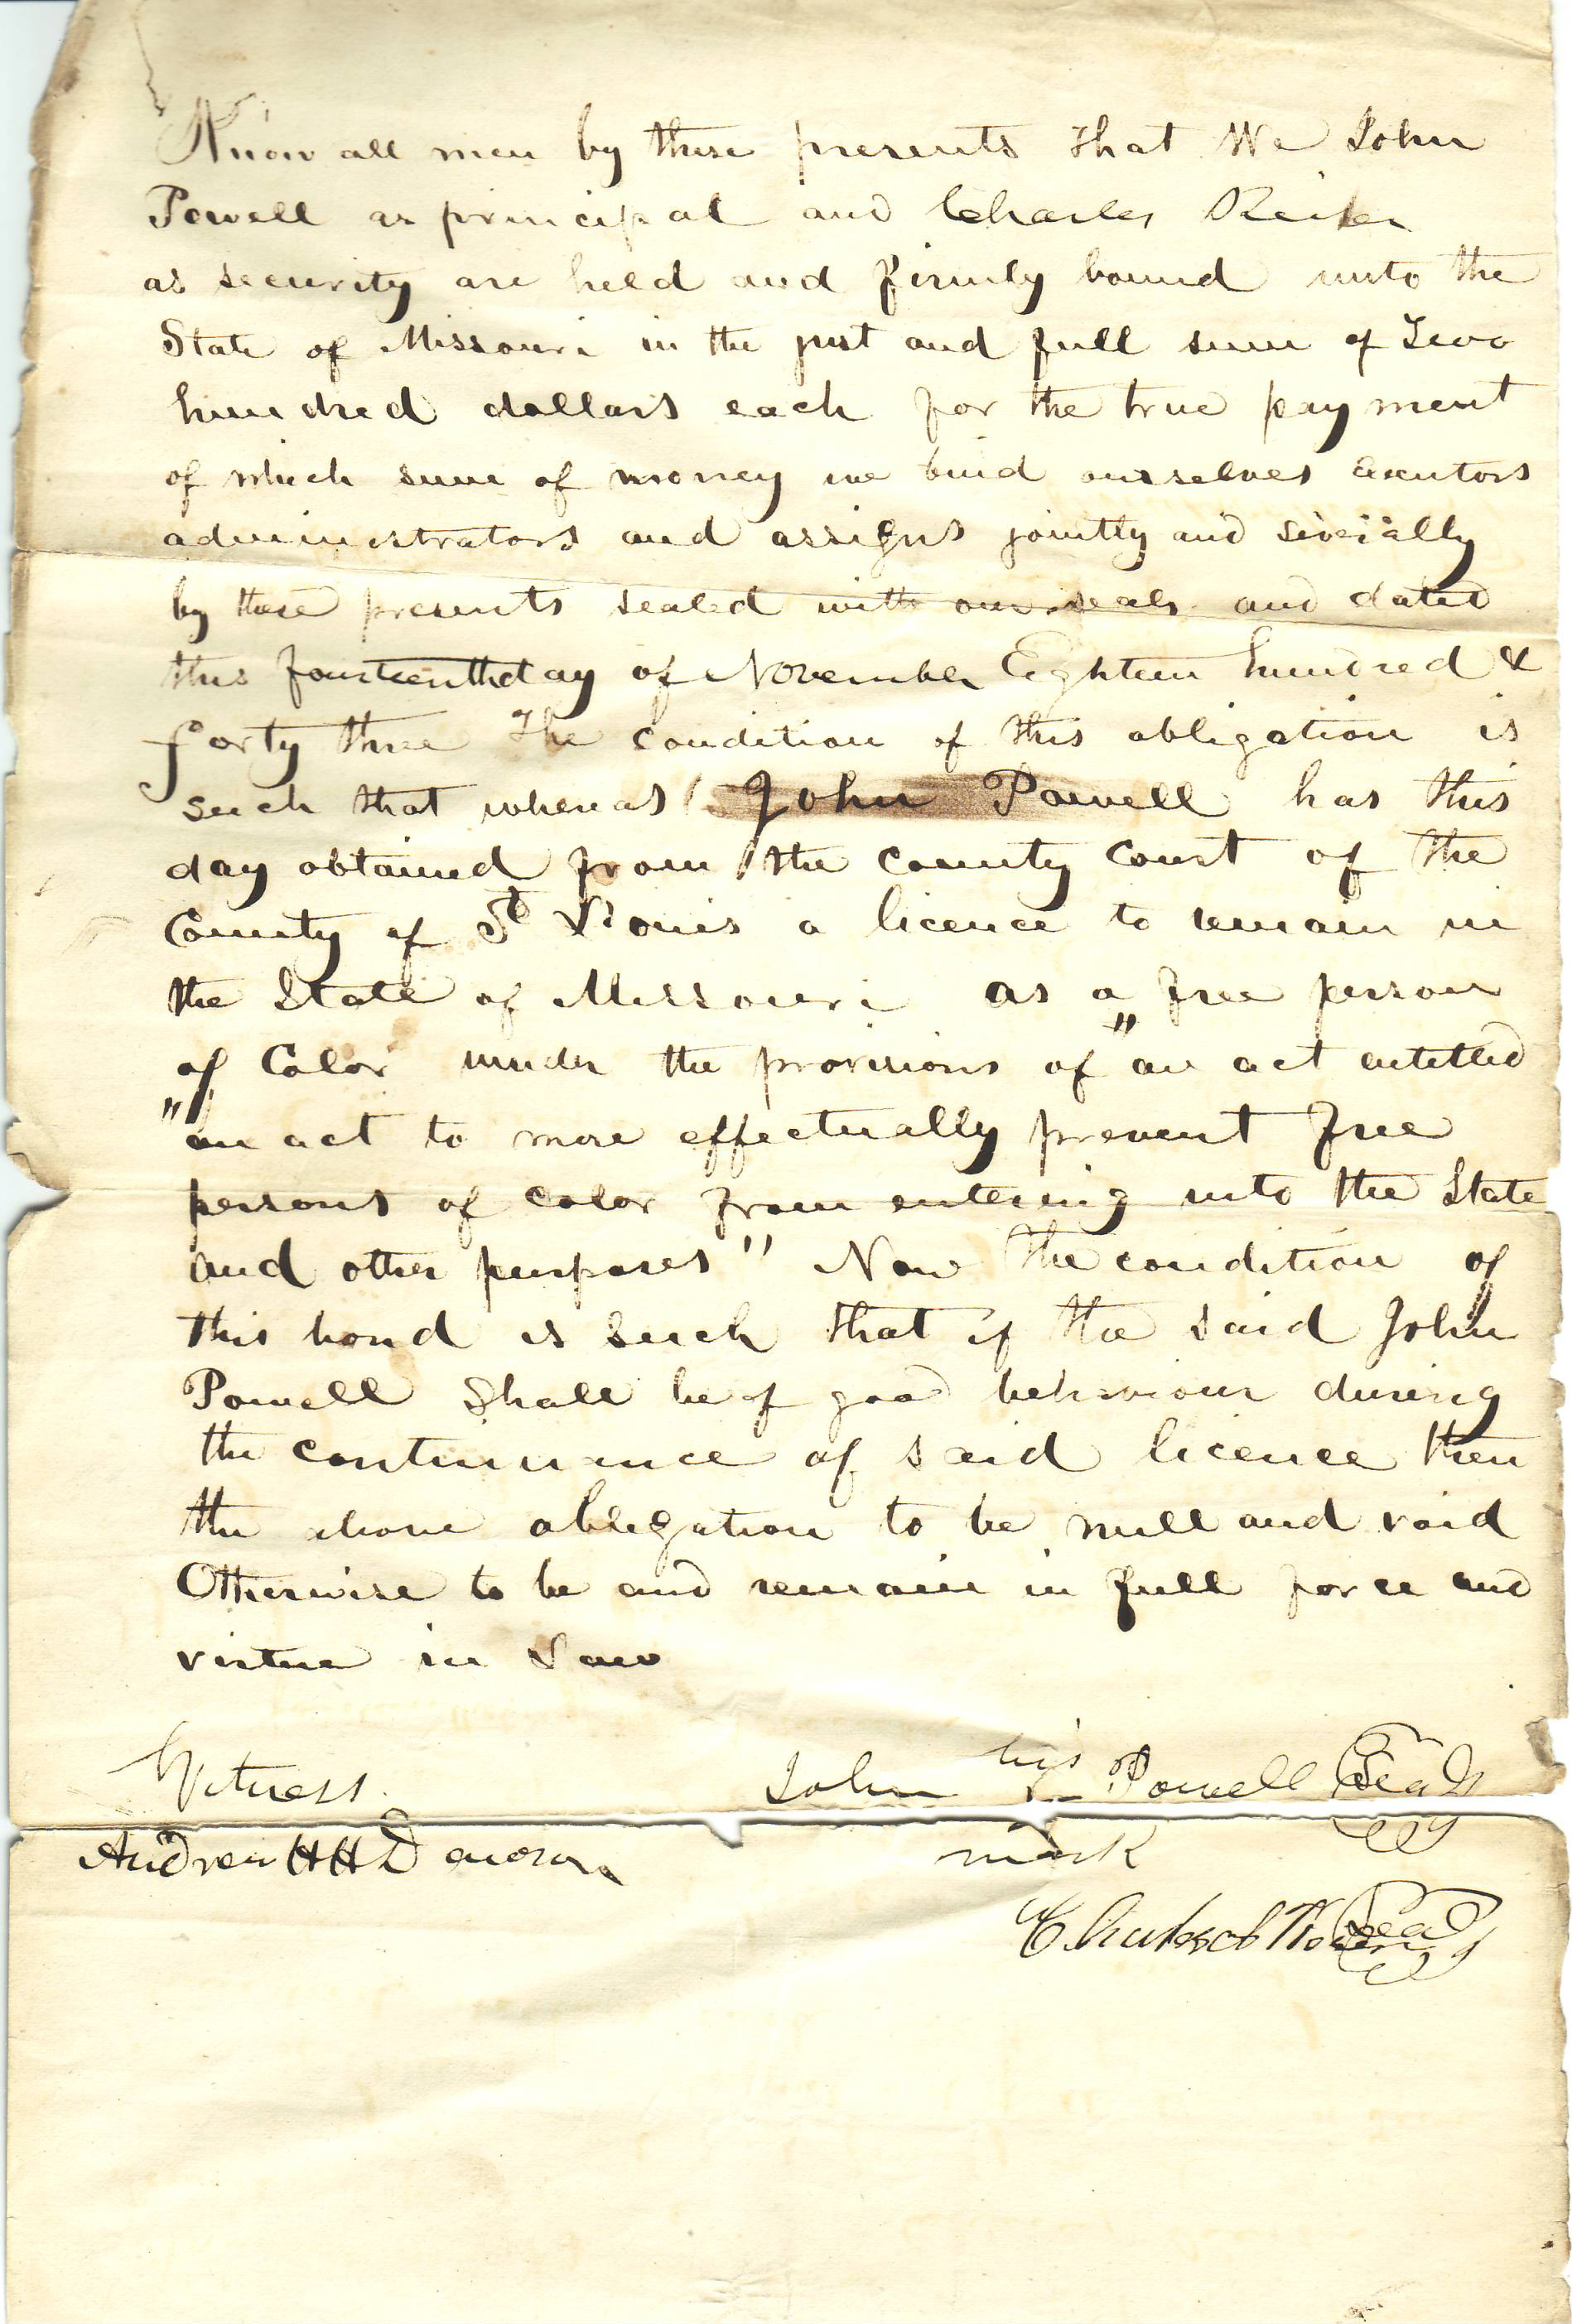 Know all men by these presents that We John
Powell as principal and Charles
as security are held and firmly bound unto the
State of Missouri in the just and full sum of Two
hundred dollars each for the true payment
of which sum of money we bind ourselves executors
administrators and assigns jointly and severally
by these presents sealed with our seals and dated
this fourteenth day of November Eighteen hundred &
forty three The condition of this obligation is
such that whereas John Powell has this
day obtained from the county court of the
County of St Louis a licence to remain in
the State of Missouri as a free person
of Color under the provisions of "an act entitled
"an act to more effectually prevent free
persons of color from entering into the State
and other purposes" Now the condition of
this bond is such that if the said John
Powell Shall be of good behaviour during
the continuance of said licence then
the above obligation to be null and void
Otherwise to be and remain in full force and
virtue in Law
Witness. John his Powell Seal
Andrew HH mark
Seal